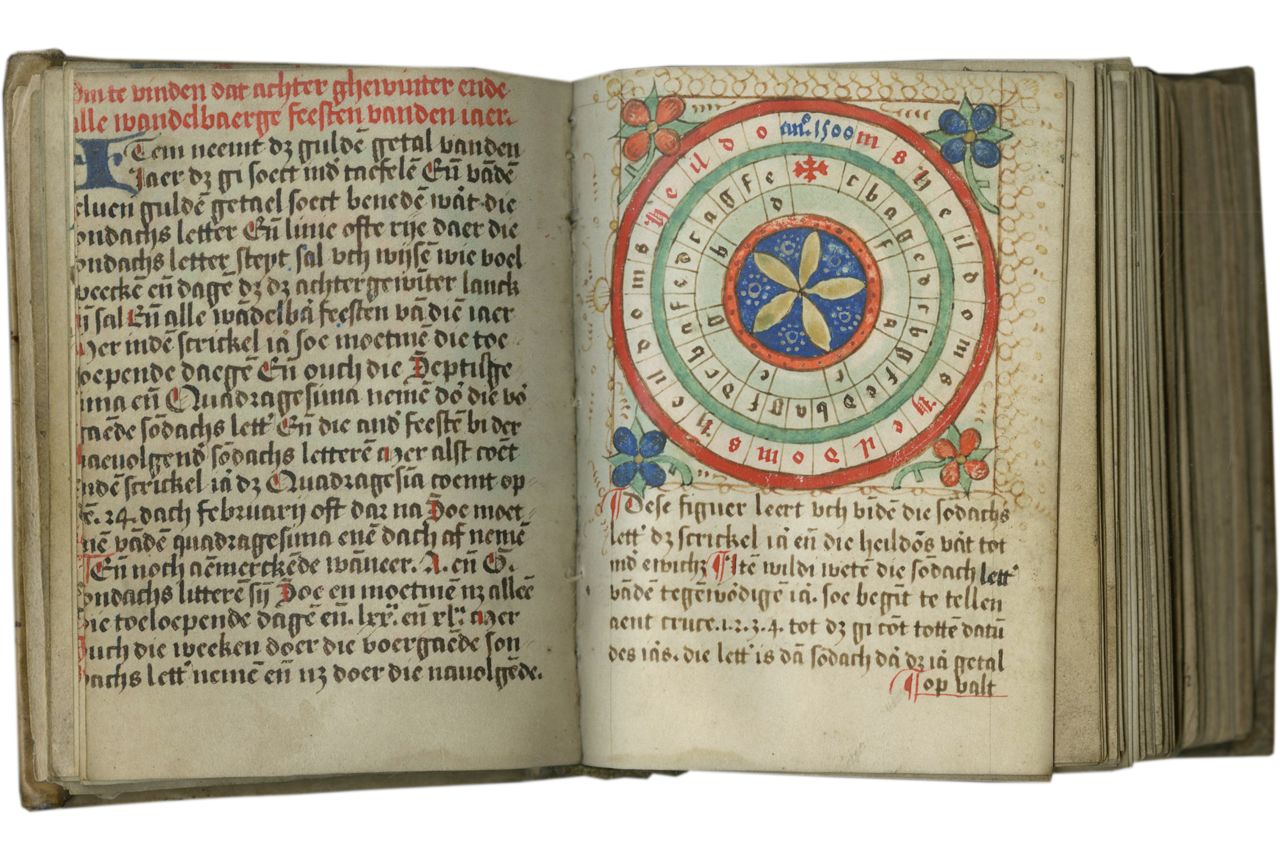 Om te vinden dat achter ghewinter ende
alle wandelbaerge feesten vanden iaer.
ITem neemt dz guldē getal vanden
Jaer dz gi soect īnd taefelē Eū vādē
seluen guldē getael soect benedē wāt die
sondachs letter Eū linie ofte rije daer die
sondachs letter stept sal vch wijsē wie voel
weeckē eū dagē dz dz achtergewīter lanck
sijn sal Eū alle wādelbā feesten vā diē iaer
Mer indē scrickel iā soe moetmē die toe
loepende daegē Eū ouch die Septisge
sima eū Quadragesima nemē dō die vō
gaēde sōdachs lett' Eū die and' feestē bi der
naeuolgend' sōdachs letterē mer alst coēt
indē scrickel iā dz Quadragesiā coemt op
dē .24. dach februarij oft dar na Doe moet
mē vādē quadragesima enē dach af nemē
Eū noch aēmerckēde wāneer. A. eū G.
sondachs litterē sij Doe en moetmē nz alleē
die toeloepende dagē eū. lxx. eū xl. mer
Ouch die weeken doer die voergaēde son
dachs lett' nemē eū nz doer die nauolgēde.
an°. 1500 m s h e i l d o m s h e i l d o m s h e i l d o m s h e i l d o
c b a g f e d c b g f e d b a g f d c b g f e d b a g f e d c a g f e
d f a c e g b
Dese figuer leert vch vidē die sōdachs
lett' dz scrickel iā eū die heildōs vāt tot
īnd ewichz Itē wildi wetē die sōdach lett'
vādē tegēwōdigē iā. soe begīt te tellen
aent cruce.1.2.3.4. tot dz gi cōt tottē datū
des iās. die lett' is dā sōdach dā dz iā getal
op valt